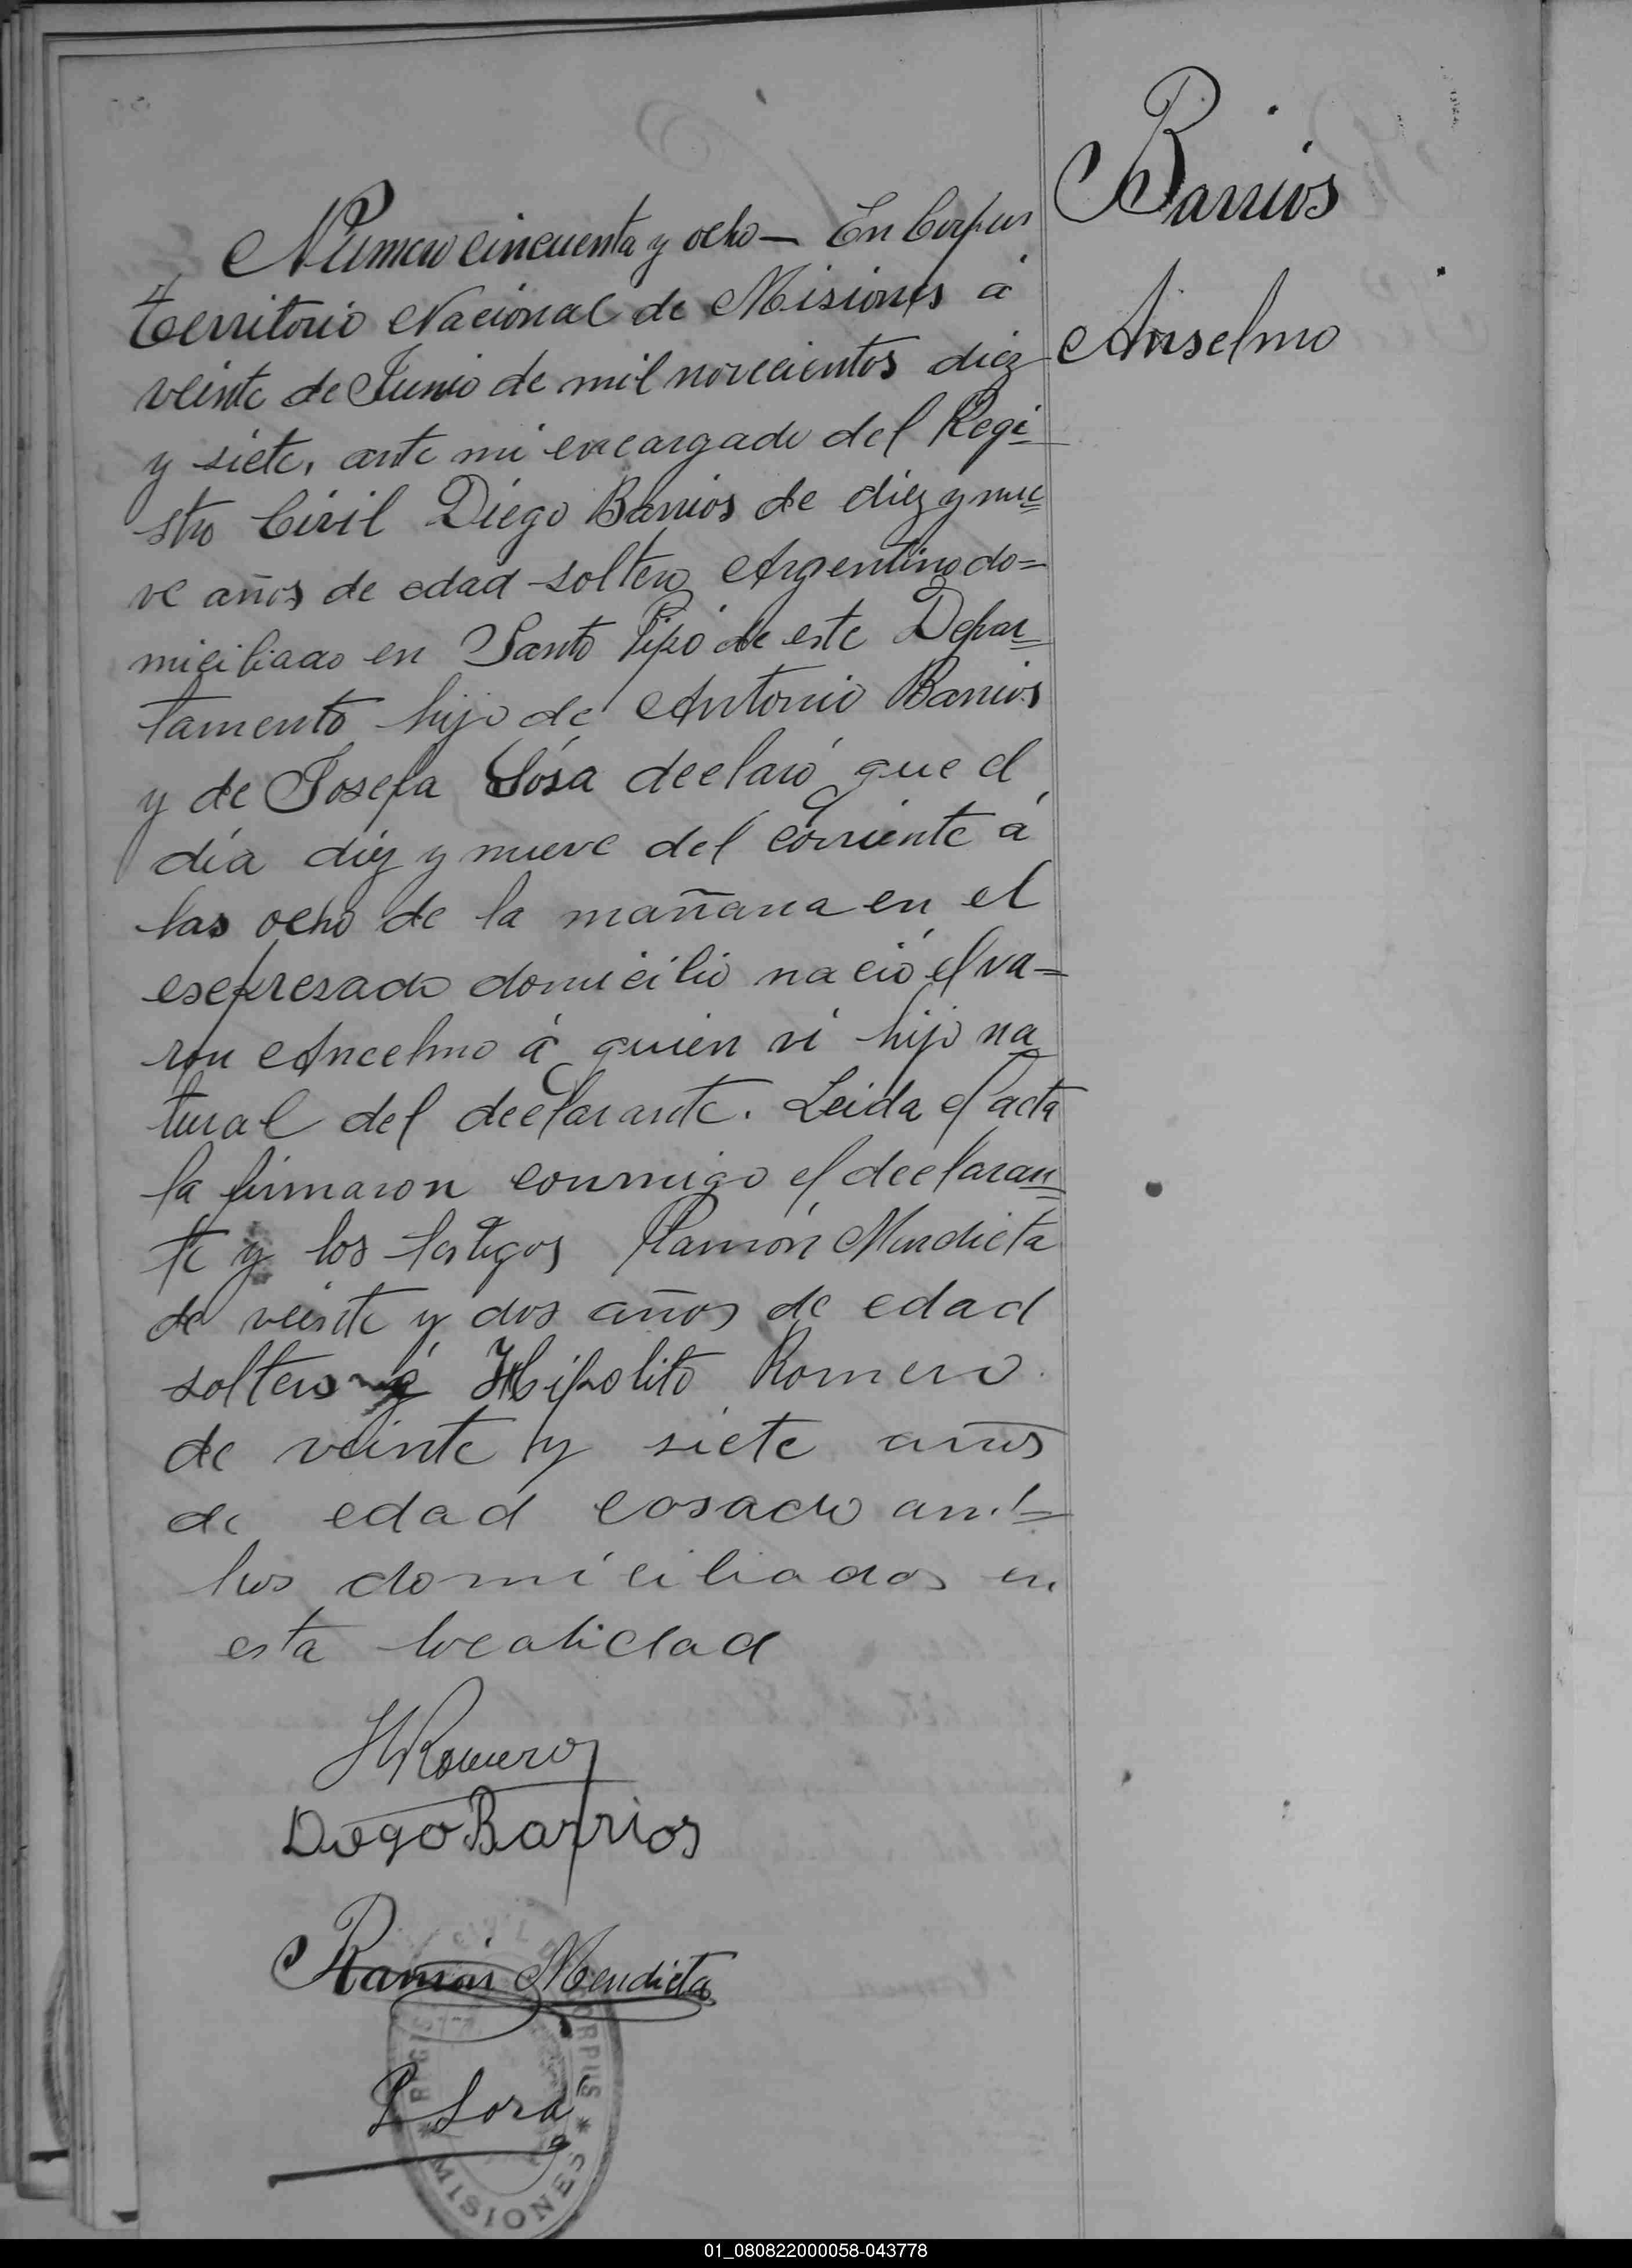 Barrios
Anselmo
Número cincuenta y ocho — En Corpus
Territorio Nacional de Misiones á
veinte de Junio de mil novecientos diez
y siete, ante mi encargado del Regi=
stro Civil Diego Barrios de diez y nue=
ve años de edad soltero Argentino do=
miciliado en Santo Pipó de este Depar=
tamento hijo de Antonio Barrios
y de Josefa Sósa declaró que el
día diez y nueve del corriente á
las ocho de la mañana en el
esepresado domicilio nació el va=
ron Ancelmo á quien ví hijo na
tural del declarante. Leida el acta
la firmaron conmigo el declaran=
te y los testigos Ramón Mendieta
de veinte y dos años de edad
soltero é Hipolito Romero
de veinte y siete años
de edad casado am=
bos domiciliados en
esta localidad
HRomero
Diego Barrios
Ramón Mendieta
MISIONES
01_080822000058-043778